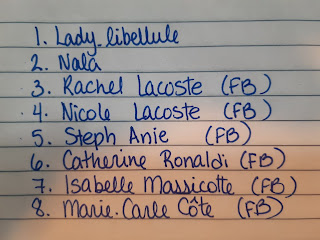 1. Lady.libellule
2. Nala
3. Rachel Lacoste (FB)
4. Nicole Lacoste (FB)
5. Steph Anie (FB)
6. Catherine Ronaldi (FB)
7. Isabelle Massicotte (FB)
8. Marie.Carle Côte (FB)